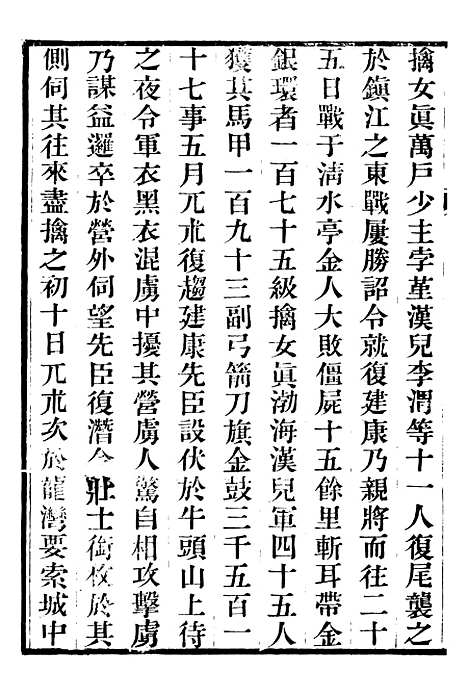 擒女眞萬戶少主孛堇漢兒李渭等十一人復尾襲之
於鎭江之東戰屢勝詔令就復建康乃親將而往二十
五日戰于淸水亭金人大敗僵屍十五餘里斬耳帶金
銀環者一百七十五級擒女眞渤海漢兒軍四十五人
獲其馬甲一百九十三副弓箭刀旗金鼓三千五百一
十七事五月兀朮復趨建康先臣設伏於牛頭山上待
之夜令軍衣黑衣混虜中擾其營虜人驚自相攻擊虜
乃謀益邏卒於營外伺望先臣復潛令壯士銜枚於其
側伺其往來盡擒之初十日兀朮次於龍灣要索城中